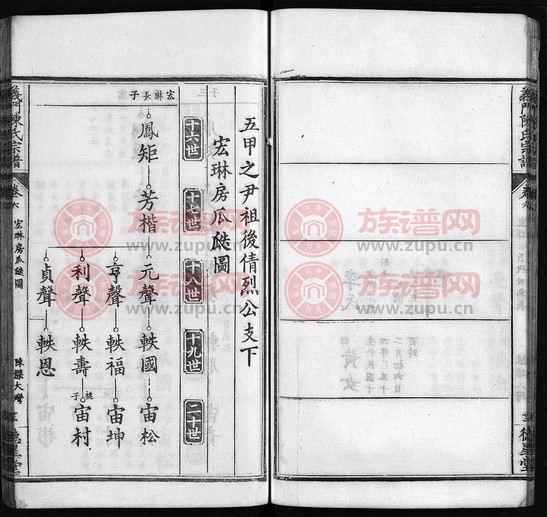 義門陳氏宗譜
卷六
德星堂
五甲之尹祖後倩烈公支下
宏琳房瓜瓞圖
十六世
十七世
十八世
十九世
二十世
宏琳長子
鳳矩
芳楷
元聲
軼國
宙松
亨聲
軼福
宙坤
利聲
軼壽
祧子
宙村
貞聲
軼恩
義門陳氏宗譜
卷六
宏琳房瓜瓞圖
陳謨大灣
德星堂
族谱网
www.zupu.cn
族谱网
www.zupu.cn
族谱网
www.zupu.cn
族谱网
www.zupu.cn